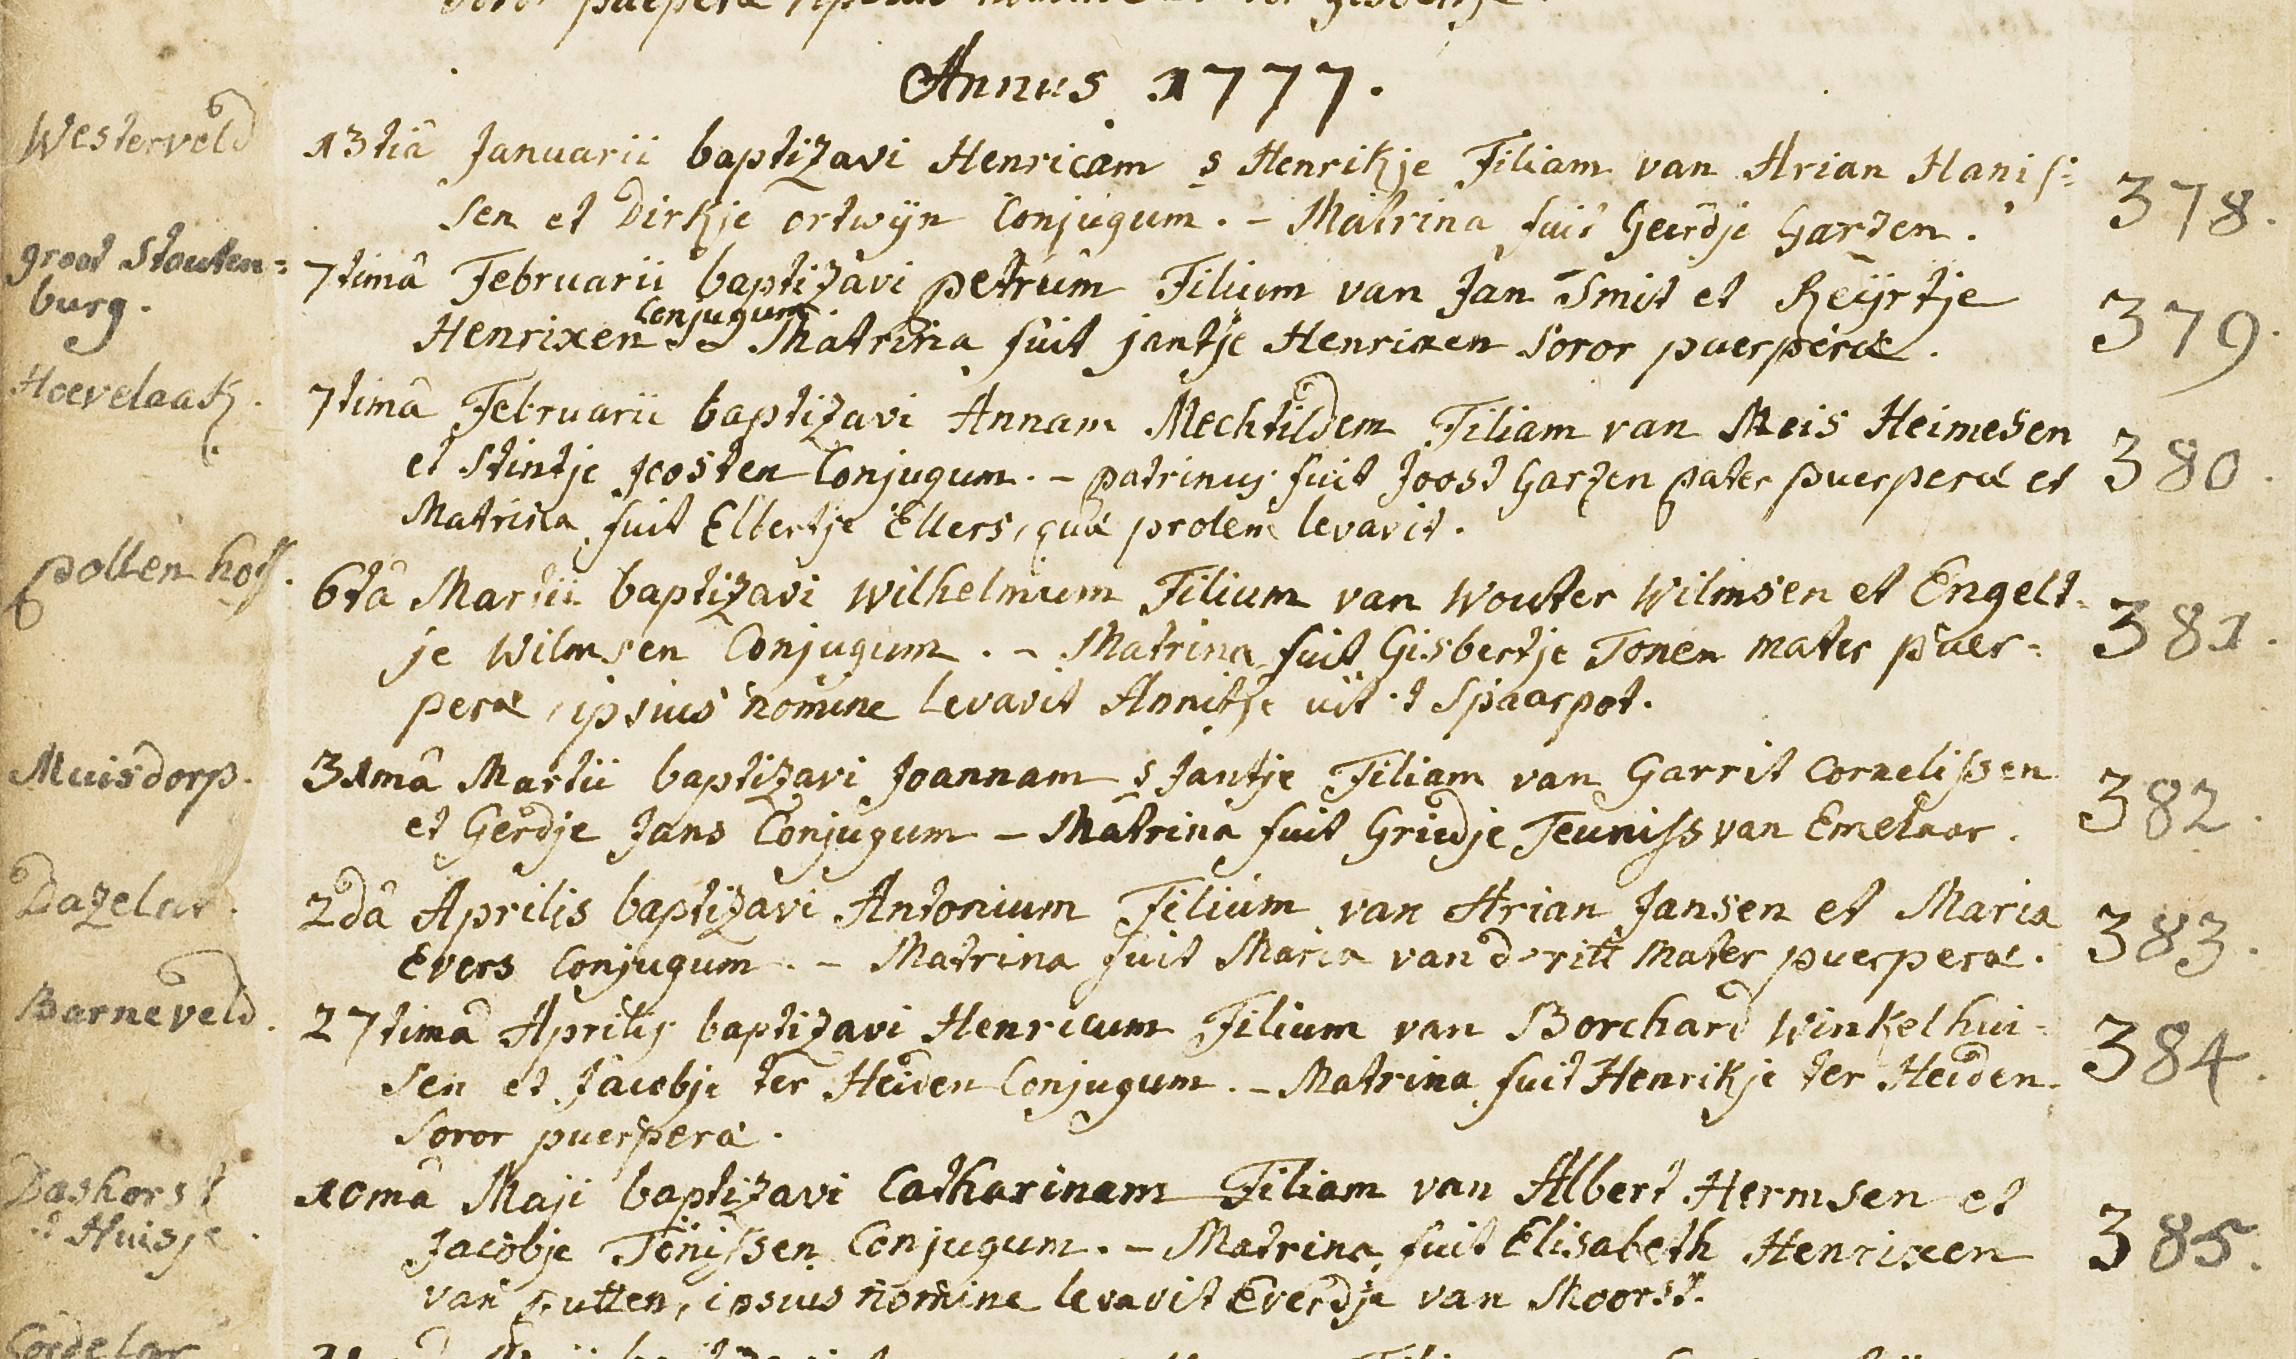 soror puerperæ ipsius nomine
Annus 1777.
Westerveld
13tiâ Januarii baptizavi Henricam s Henrikje Filiam van Arian Hanis:
sen et Dirkje ortwijn Conjugum. – Matrina fuit Geerdje Garzen.
378.
groot Stouten=
burg.
7timâ Februarii baptizavi petrum Filium van Jan Smit et Reijrtje
Conjugum
Henrixen – Matrina fuit jantje Henrixen soror puerperæ.
379.
Hoevelaak.
7timâ Februarii baptizavi Annam Mechtildem Filiam van Meis Heimesen
et Stintje Joosten Conjugum. – patrinus fuit Joost Garzen pater puerperæ et
Matrina fuit Elbertje Ellers, quæ prolem levavit.
380.
pollen hoff.
6tâ Martii baptizavi Wilhelmum Filium van Wouter Wilmsen et Engelt=
je Wilmsen Conjugum. – Matrina fuit Gisbertje Tonen mater puer=
peræ, ipsius nomine levavit Annitje uit 't Spaarpot.
381.
Muisdorp.
31mâ Martii baptizavi Joannam s Jantje Filiam van Garrit Cornelissen
et Gerdje Jans Conjugum – Matrina fuit Griedje Teuniss van Emelaar.
382.
Dazelar.
2dâ Aprilis baptizavi Antonium Filium van Arian Jansen et Maria
Evers Conjugum. – Matrina fuit Maria van mater puerperæ.
383.
Barneveld.
27timâ Aprilis baptizavi Henricum Filium van Borchard Winkelhui=
sen et Jacobje ter Heiden Conjugum. – Matrina fuit Henrikje ter Heiden
soror puerperæ.
384.
Dashorst
't Huisje.
10mâ Maji baptizavi Catharinam Filiam van Albert Hermsen et
Jacobje Tönissen Conjugum. – Matrina fuit Elisabeth Henrixen
van putten, ipsius nomine levavit Everdje van Moorst.
385.